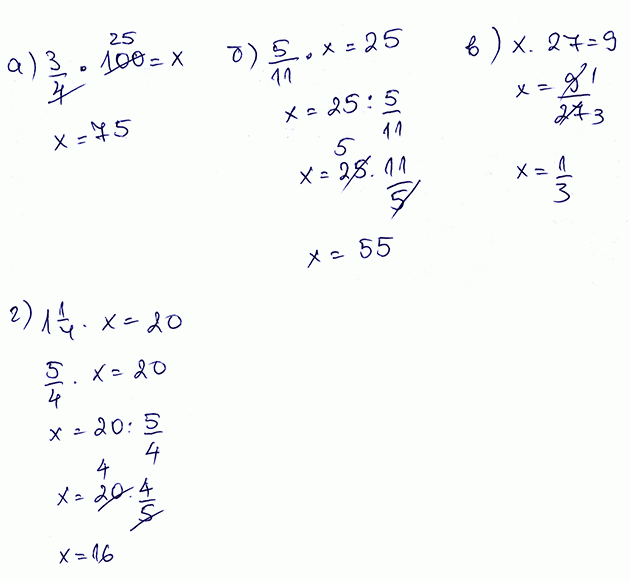 а) 3/4 · 100 = x
25
x = 75
б) 5/11 · x = 25
x = 25 : 5/11
5
x = 25 · 11/5
x = 55
в) x · 27 = 9
x = 9/27
1
3
x = 1/3
г) 1 1/4 · x = 20
5/4 · x = 20
x = 20 : 5/4
4
x = 20 · 4/5
x = 16